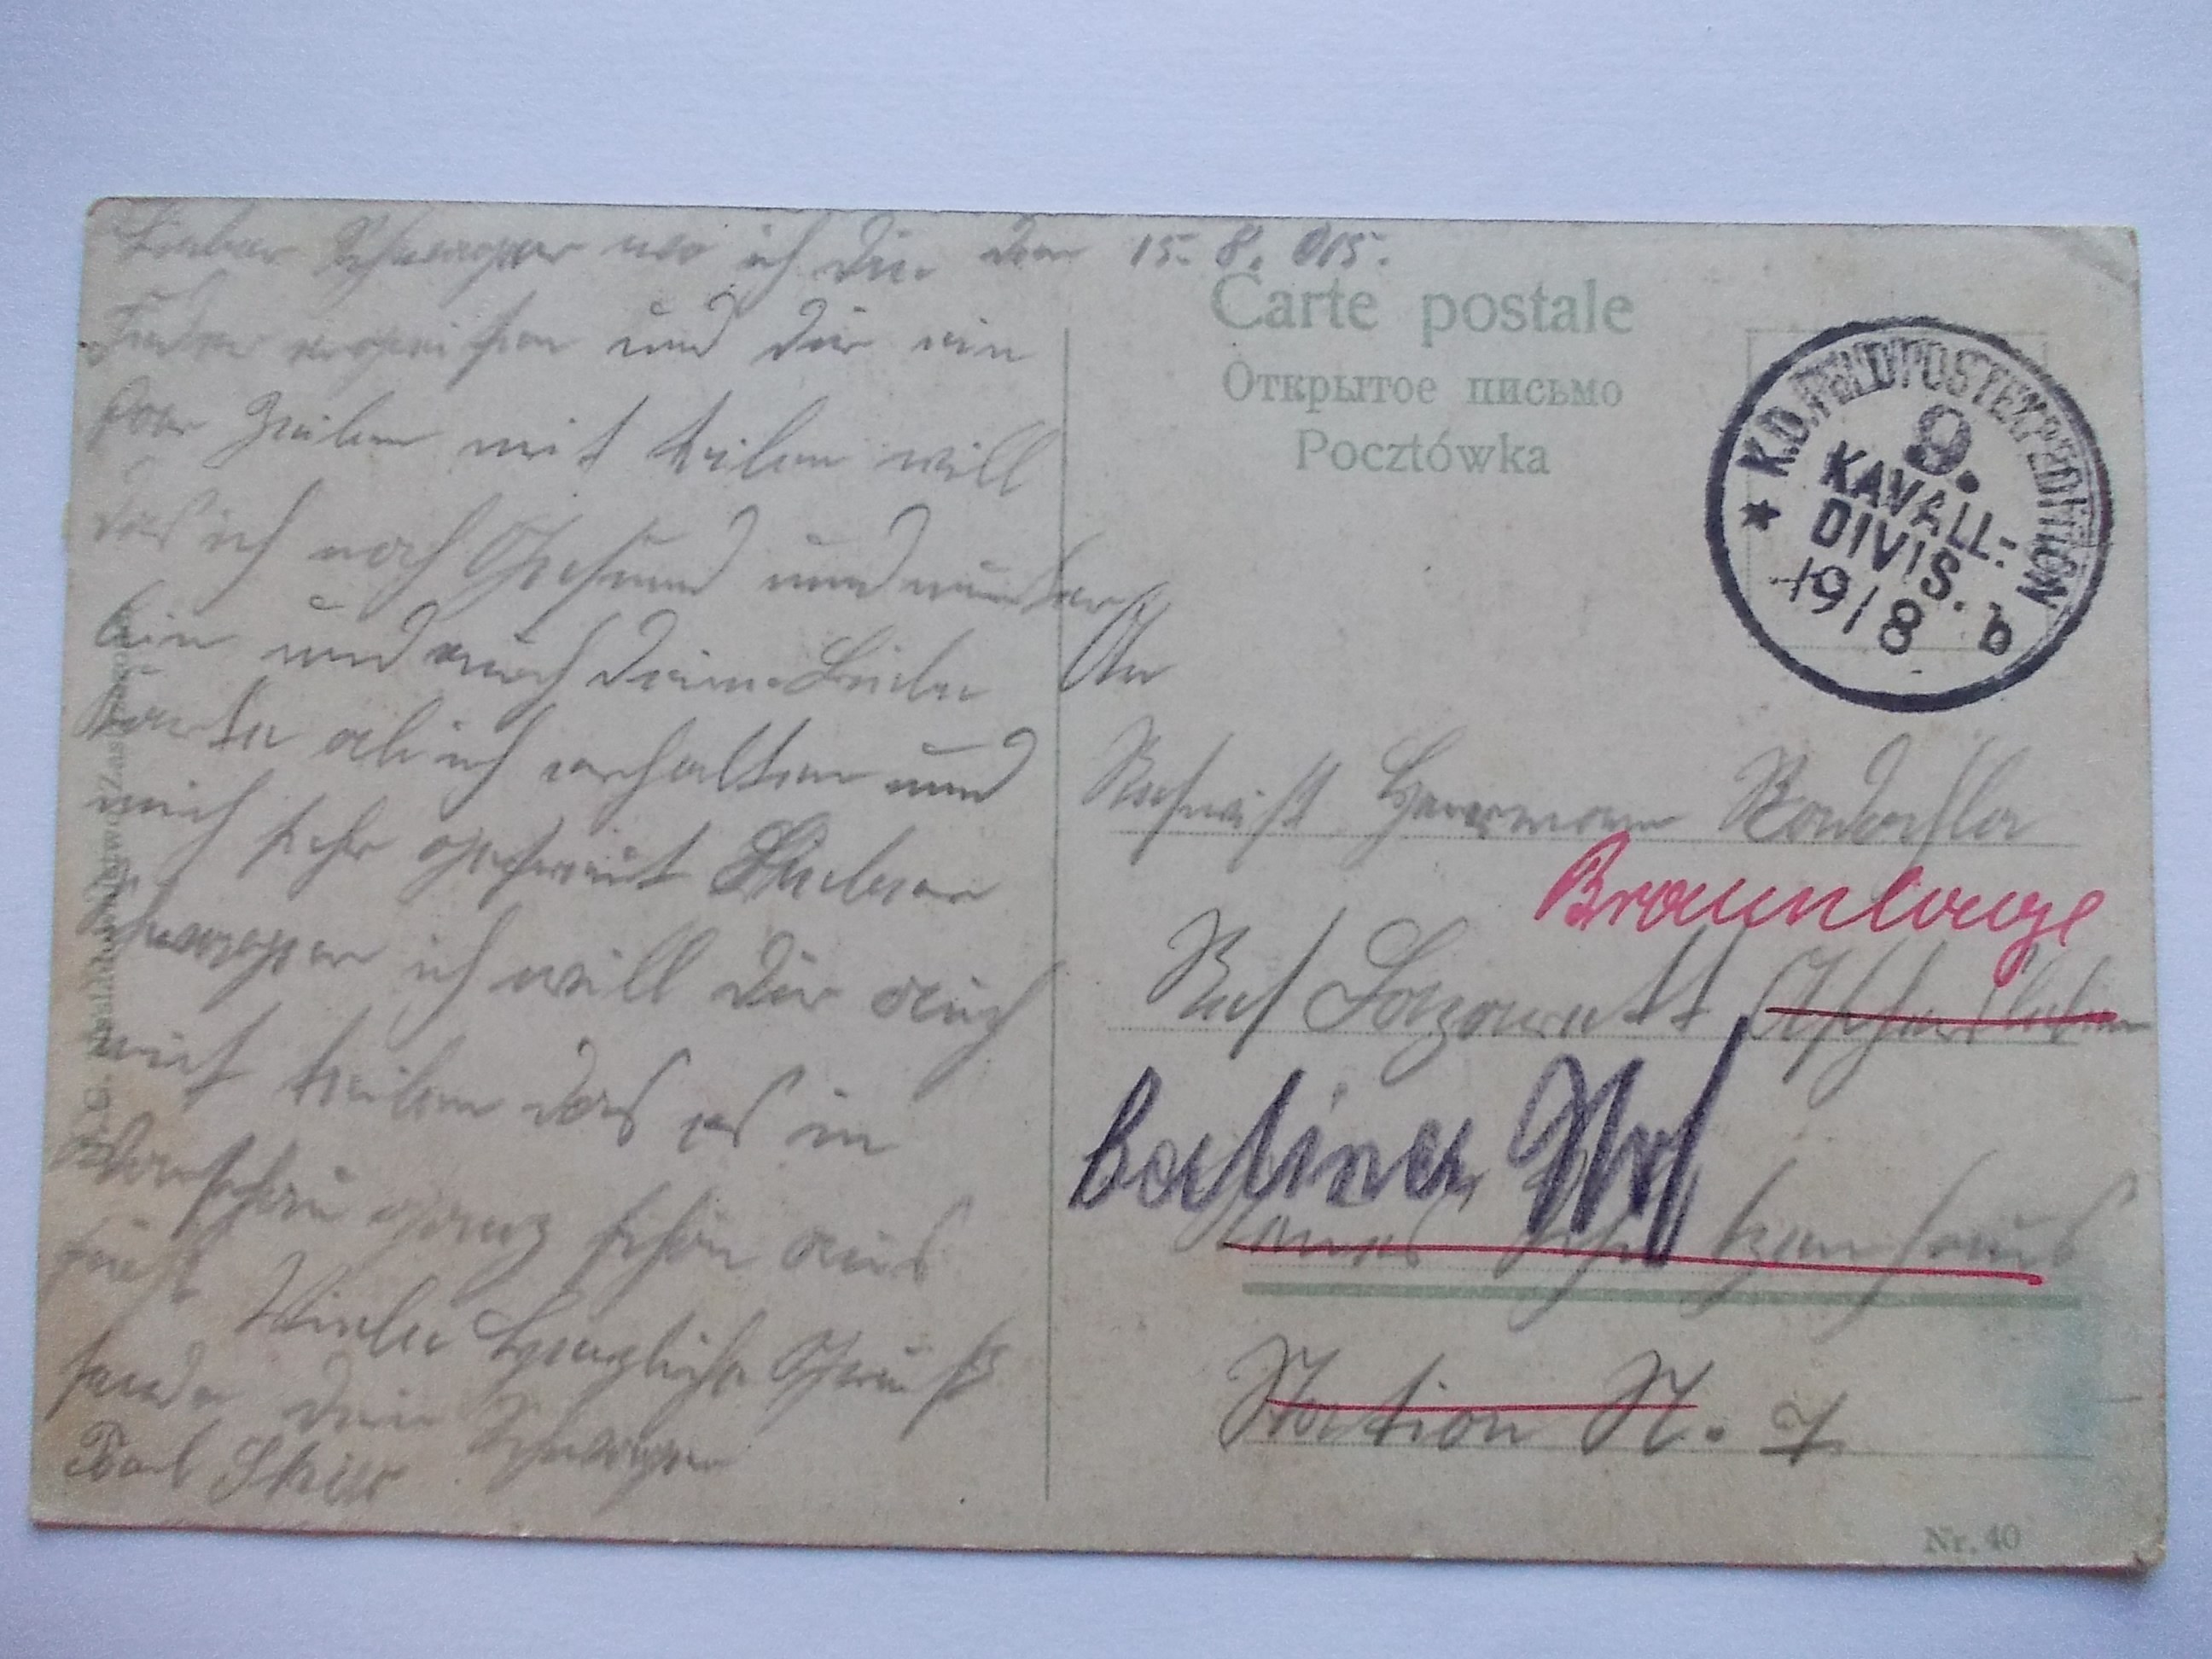 Lieber Schwager wo ich Dir den 15. 8. 015.
und Dir ein
paar Zeilen mit teilen will
das ich noch Gesund und munter
bin und auch Deine Liebe
Karte ab ich erhalten und
mich sehr gefreut Lieber
Schwager ich will Dir auch
mit teilen das es in
Warschau ganz schön aus
sieht Viele Herzliche Grüß
sendet Dein Schwager
Paul
Carte postale
Открытое письмо
Pocztówka
K.D. FELDPOSTEXPEDITION
KAVALL.-
DIVIS. b
19/8
An
Hermann
Braunlauge
Res Lazarett Aschersleben
Berliner Hof
Schützenhaus
Station N. 7
Nr. 40